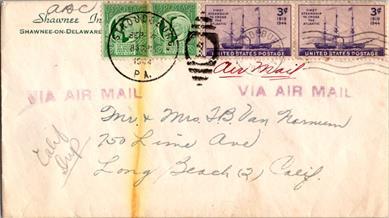 ABC
Shawnee In
SHAWNEE-ON-DELAWARE
SEP
1944
PA.
FIRST STEAMSHIP TO CROSS THE ATLANTIC
1819
1944
3¢
UNITED STATES POSTAGE
FIRST STEAMSHIP TO CROSS THE ATLANTIC
1819
1944
3¢
UNITED STATES POSTAGE
Air Mail
VIA AIR MAIL
VIA AIR MAIL
Calif
Mr. & Mrs. F.B. Van Normun
750 Lime Ave
Long Beach (2) Calif.